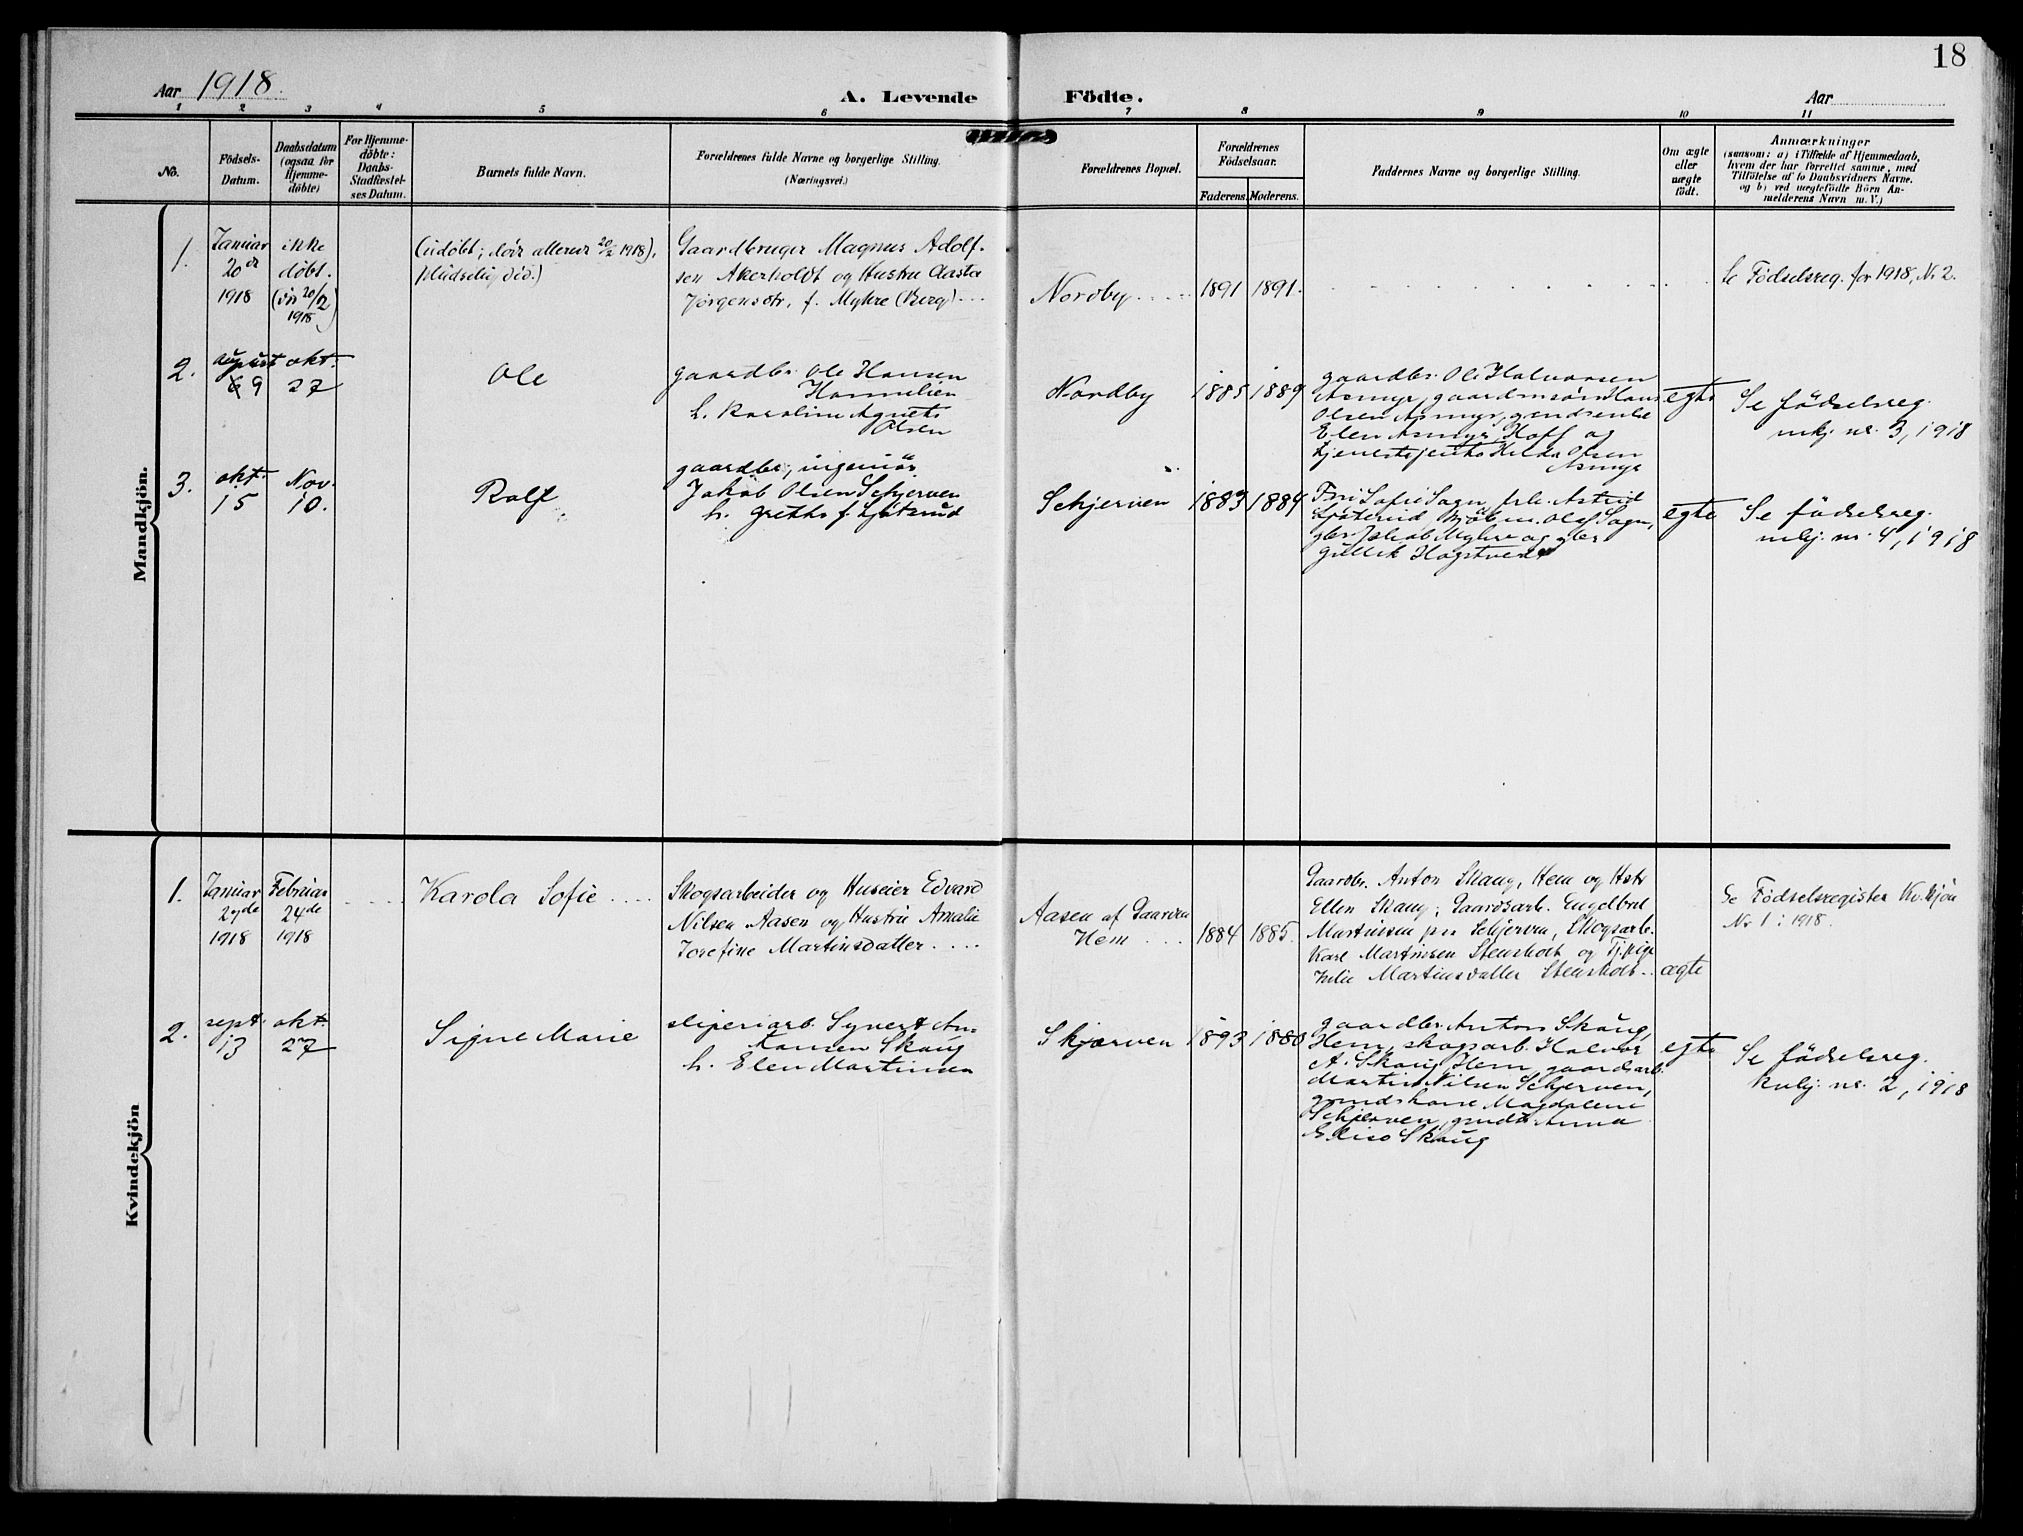 18
Aar 1918.
A. Levende Födte.
Aar
1 2 3 4 5 6 7 8 9 10 11
No.
Födsels-
Datum.
Daabsdatum
(ogsaa for
Hjemme-
döbte)
For Hjemme-
döbte:
Daabs-
Stadfæstel-
ses Datum.
Barnets fulde Navn.
Forældrenes fulde Navne og borgerlige Stilling.
(Næringsvei.)
Forældrenes Bopæl.
Forældrenes
Födselsaar.
Faderens. Moderens.
Faddernes Navne og borgerlige Stilling.
Om ægte
eller
uægte
födt.
Anmærkninger
(saasom: a) i Tilfælde af Hjemmedaab,
hvem der har forrettet samme, med
Tilföielse af to Daabsvidners Navne.
og b) ved uægtefödte Börn An-
melderens Navn m. V.)
Mandkjön.
1.
Januar
20de
1918
ikke
døbt.
(død 20/2
1918)
(udøbt; døde allerede 20/2 1918),
pludselig død.)
Gaardbruger Magnus Adolf-
sen Akerholdt og Hustru Aasta
Jørgensdtr. f. Myhre (Berg) ...
Nordby
1891 1891.
Se Födselsreg. for 1918, No 2.
2.
august
9
okt.
27
Ole
gaardbr. Ole Hansen
h. Karoline Agnets
Olsen
Nordby
1885 1889
gaardbr. Ole Halvorsen
Asmyr, gaardmsøn Hans
Olsen Asmyr,
Elen Asmyr Hoff og
tjenestejente Hilda Olsen
Asmyr
egte
Se födselsreg.
mkj. nr. 3, 1918
3.
okt.
15
Nov.
10.
Rolf
gaardbr., ingeniör
Jakob Olsen Schjerven
h. Grethe f. Ljøterud
Schjerven
1883 1884
Fru Sofie Sagn, frk. Astrid
Ljøterud, Olaf Sagn,
gbr. Jakob Myhre og gbr.
Gullik Hogstvedt
egte
Se födselsreg.
mkj. nr. 4, 1918
Kvindekjön
1.
Januar
27de
1918
Februar
24de
1918
Karola Sofie ....
Skogsarbeider og Huseier Edvard
Nilsen Aasen og Hustru Amalie
Josefine Martinsdatter ....
Aasen af Gaarden
Hem ...
1884 1885.
Gaardbr. Anton Skaug, Hem og Hstr
Ellen Skaug; Gaardsarb. Engelbret
Martinsen paa Schjerven, Skogsarb.
Karl Martinsen Stensholt og Tj.pige
Julie Martinsdatter Stensholt..
ægte
Se Födselsregister Kv.kjön
No 1: 1918.
2.
sept.
13
okt.
27
Signe Marie
sliperiarb. Syvert An-
tonsen Skaug
h. Elen Martinsen
Skjærven
1893 1880
gaardbr. Anton Skaug,
Hem, skogsarb. Halvor
A. Skaug Hem, gaardsarb.
Martin Nilsen Schjerven,
gmdskone Magdalene
Schjerven, gmdd. Anna
Elise Skaug
egte
Se födselsreg.
kvkj. nr. 2, 1918